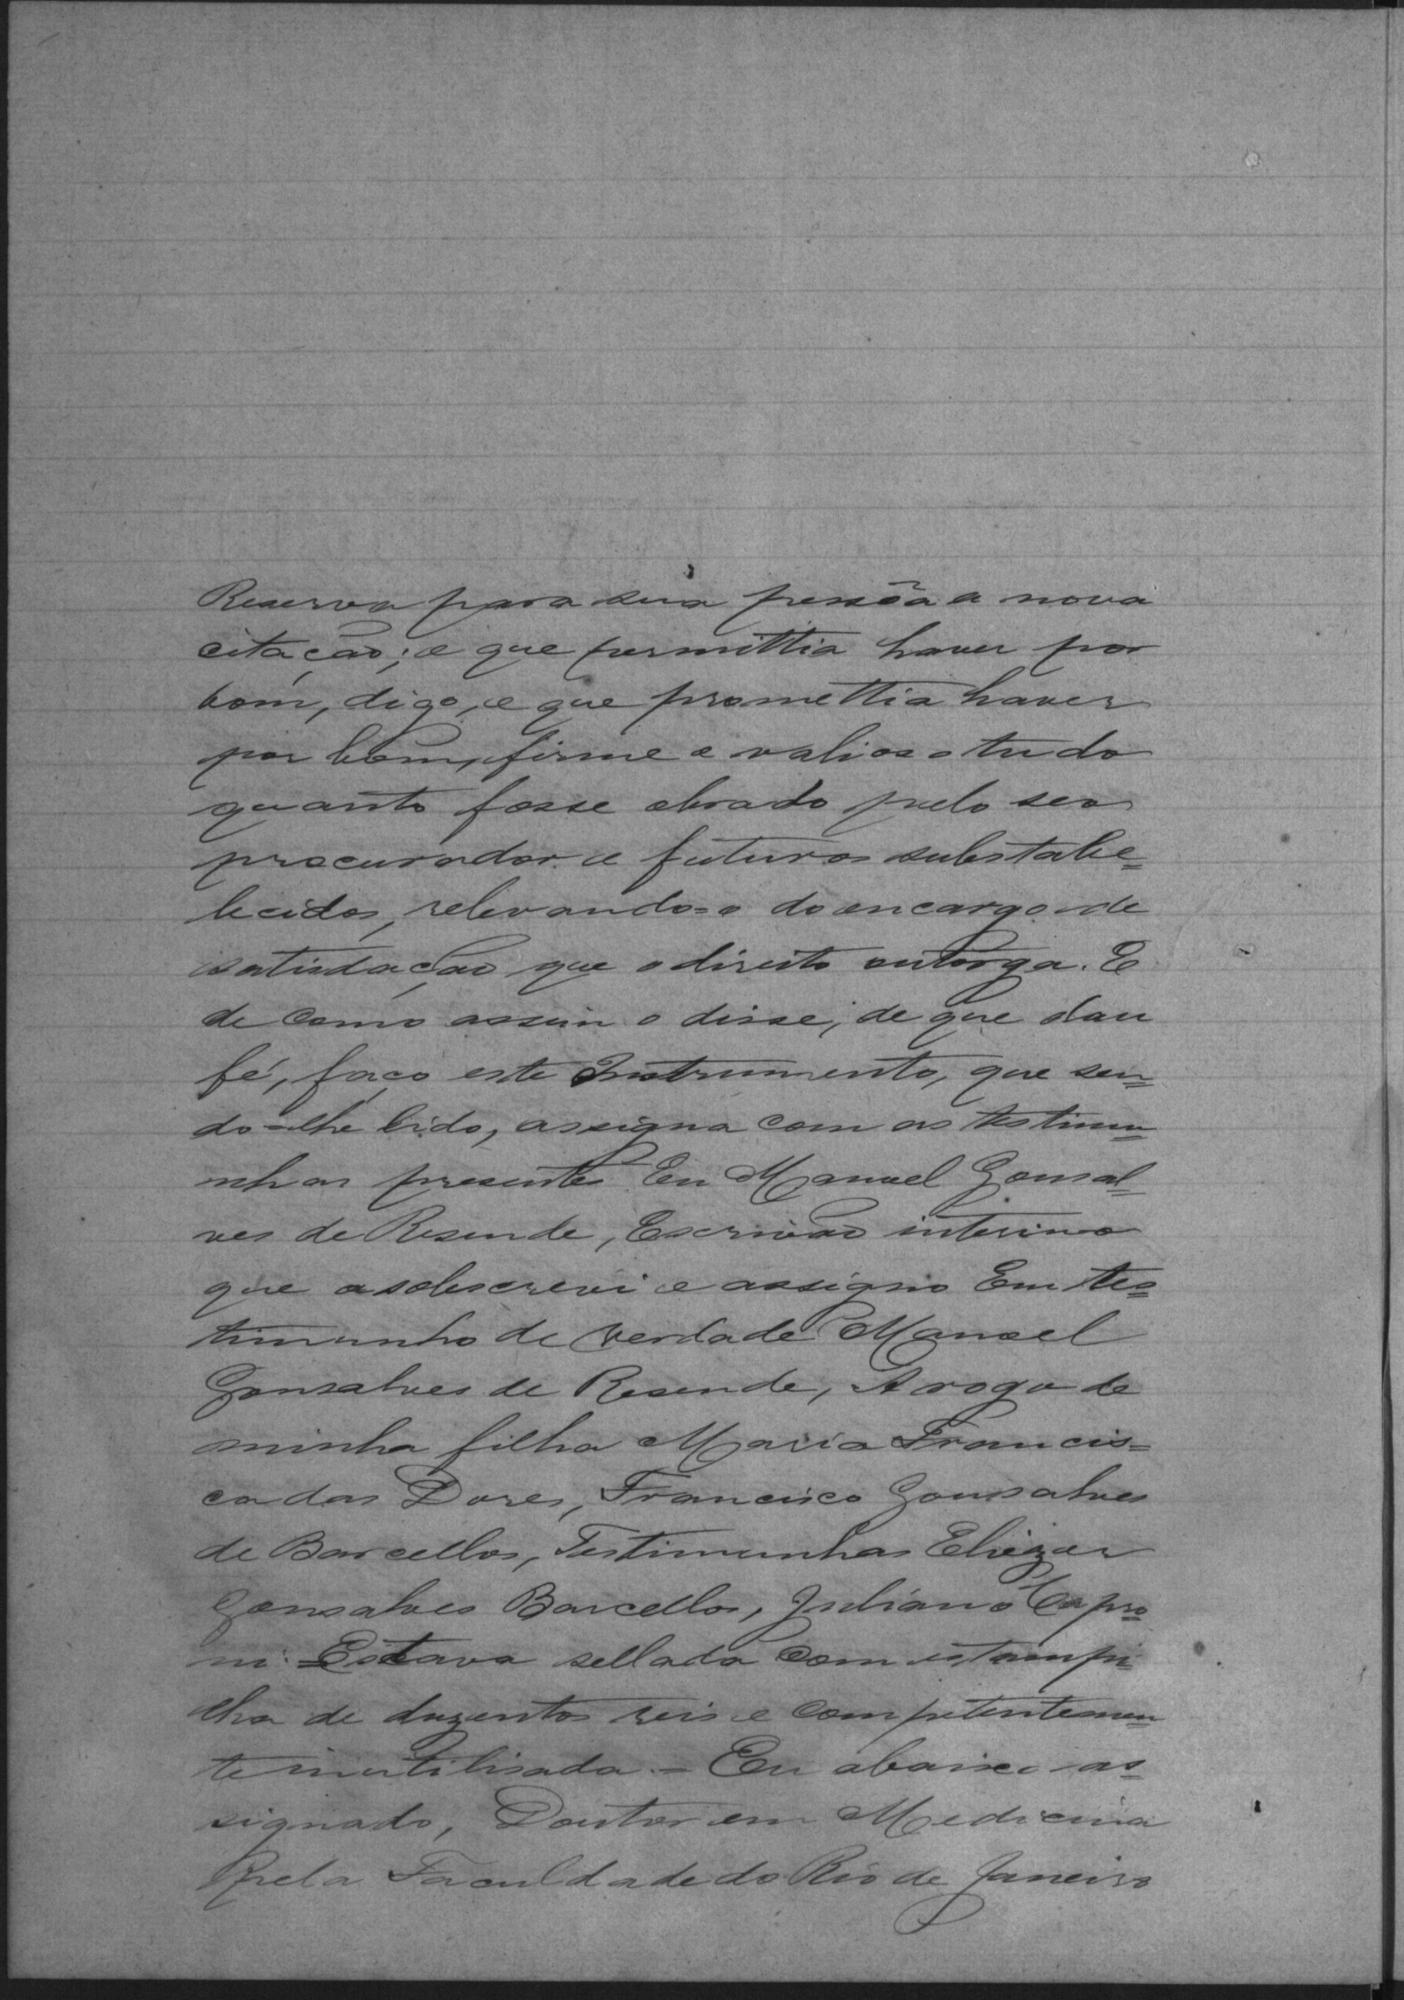 Reserva para sua pessôa a nova
citação; e que permittia haver por
bom, digo, e que promettia haver
por bom, firme e valioso tudo
quanto fosse obrado pelo seo
procurador e futuros substabe=
lecidos, relevando=o do encargo de
satisdação que o direito outorga. E
de como assim o disse, de que dou
fé, faço este Instrumento, que sen=
do=lhe lido, assigna com as testimu=
nhas presentes Eu Manoel Gonsal=
ves de Resende, Escrivão interino
que a sobscrevi e assigno Em tes=
timunho de verdade Manoel
Gonsalves de Resende, A rogo de
minha filha Maria Francis=
ca das Dores, Francisco Gonsalves
de Barcellos, Testimunhas Eliezer
Gonsalves Barcellos, Juliano Capro=
ni = Estava sellada com estampi=
lha de duzentos reis e competentemen=
te inutilisada. = Eu abaixo as=
signado, Doutor em Medicina
pela Faculdade do Rio de Janeiro